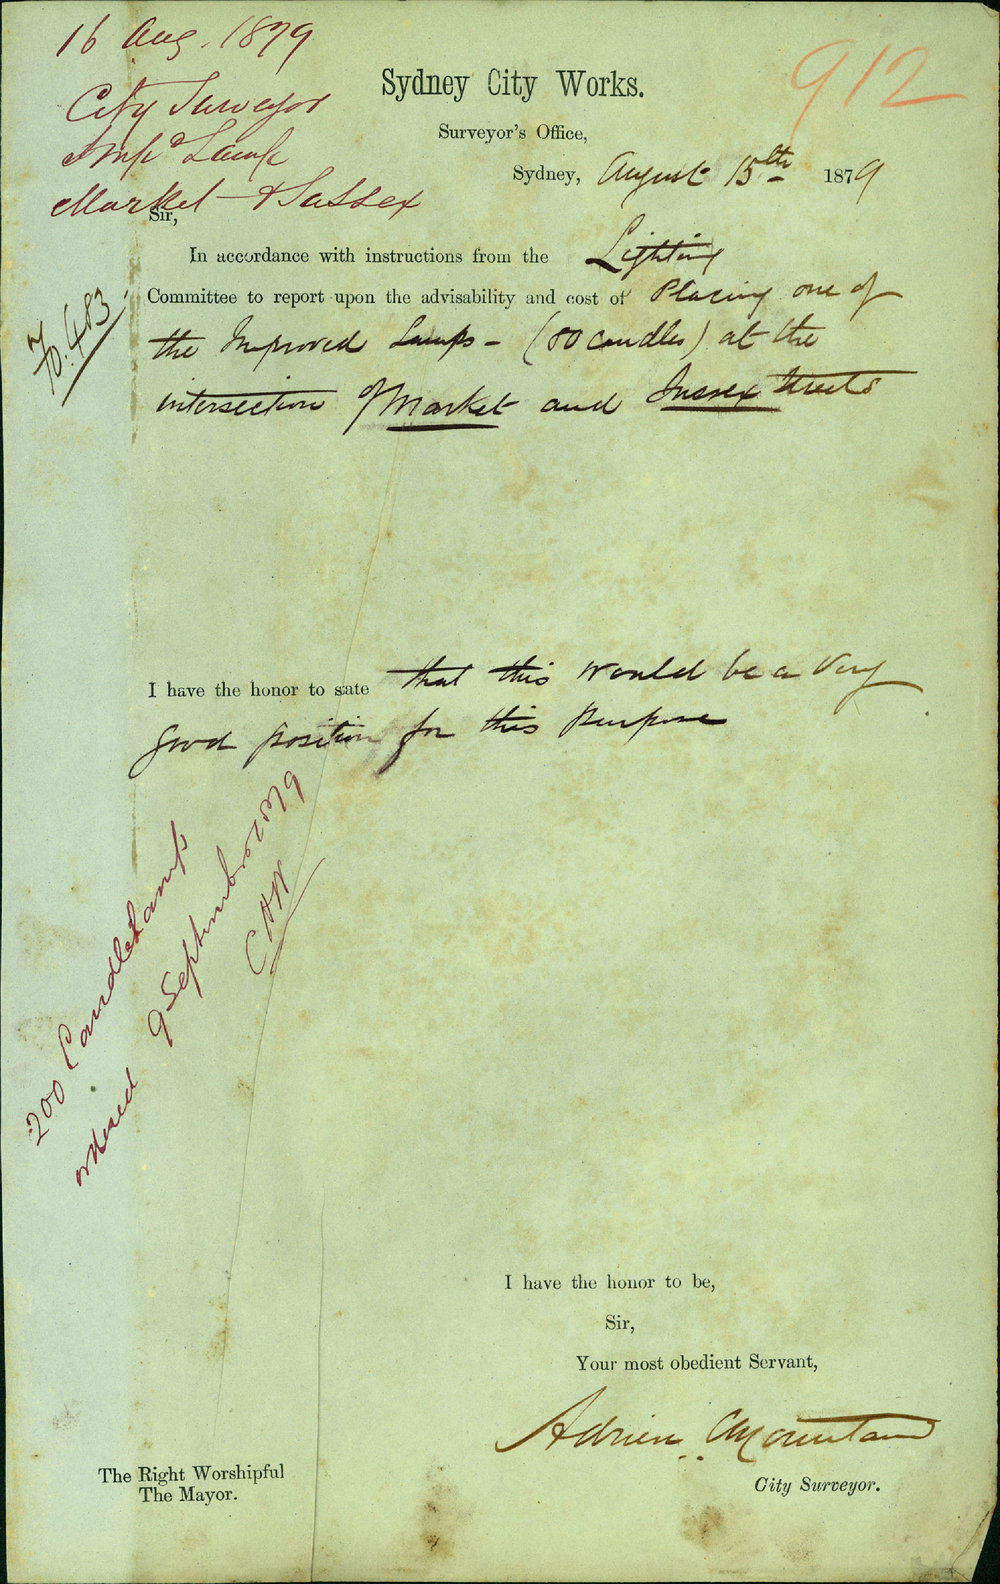 16 Aug. 1879
City Surveyor
Impd Lamp
Market & Sussex
912
Sydney City Works.
Surveyor's Office,
Sydney, August 15th 1879
Sir,
In accordance with instructions from the Lighting
Committee to report upon the advisability and cost of Placing one of
the Improved Lamps - (80 candles) at the
intersection of Market and Sussex Streets
I have the honor to state that this would be a very
good position for this purpose
200 Candle Lamp
ordered 9 September 1879
I have the honor to be,
Sir,
Your most obedient Servant,
Adrien Mountain
City Surveyor.
The Right Worshipful
The Mayor.